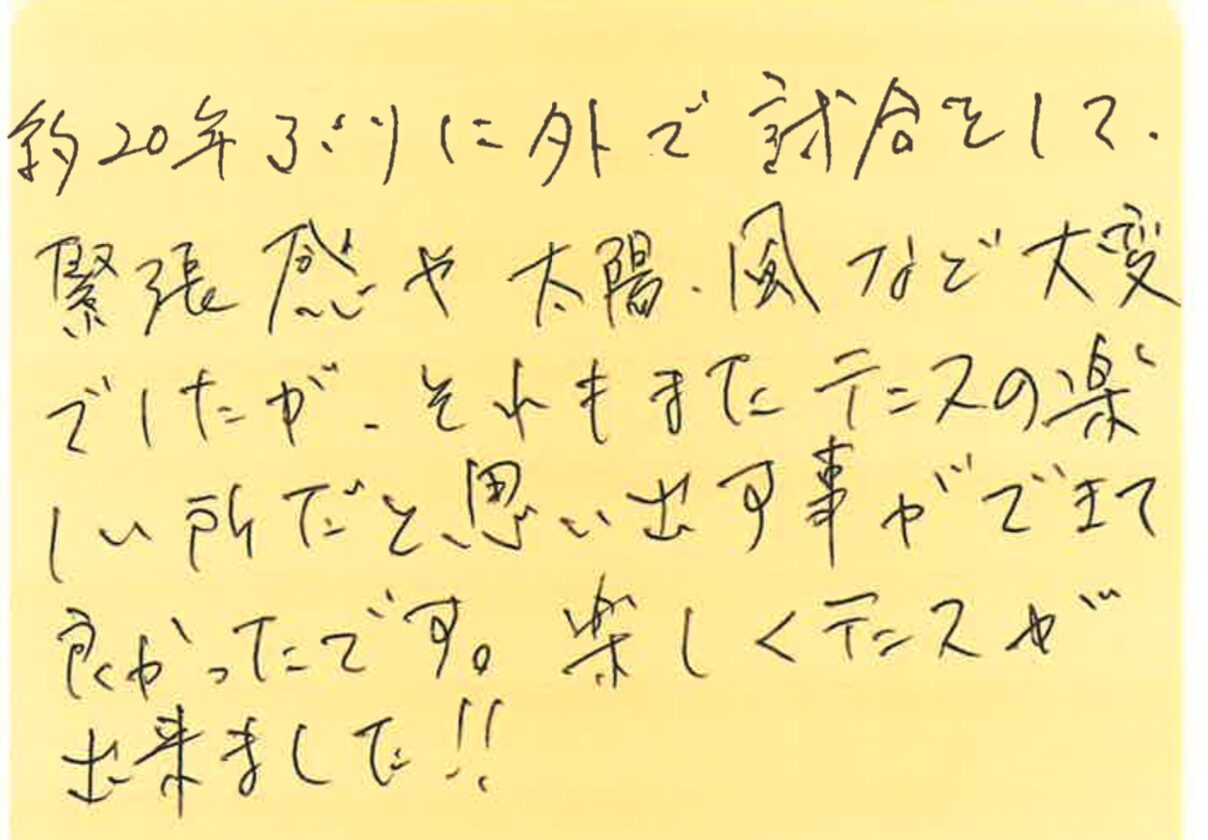 約20年ぶりに外で試合をして、
緊張感や太陽、風など大変
でしたが、それもまたテニスの楽
しい所だと思い出す事ができて
良かったです。楽しくテニスが
出来ました!!